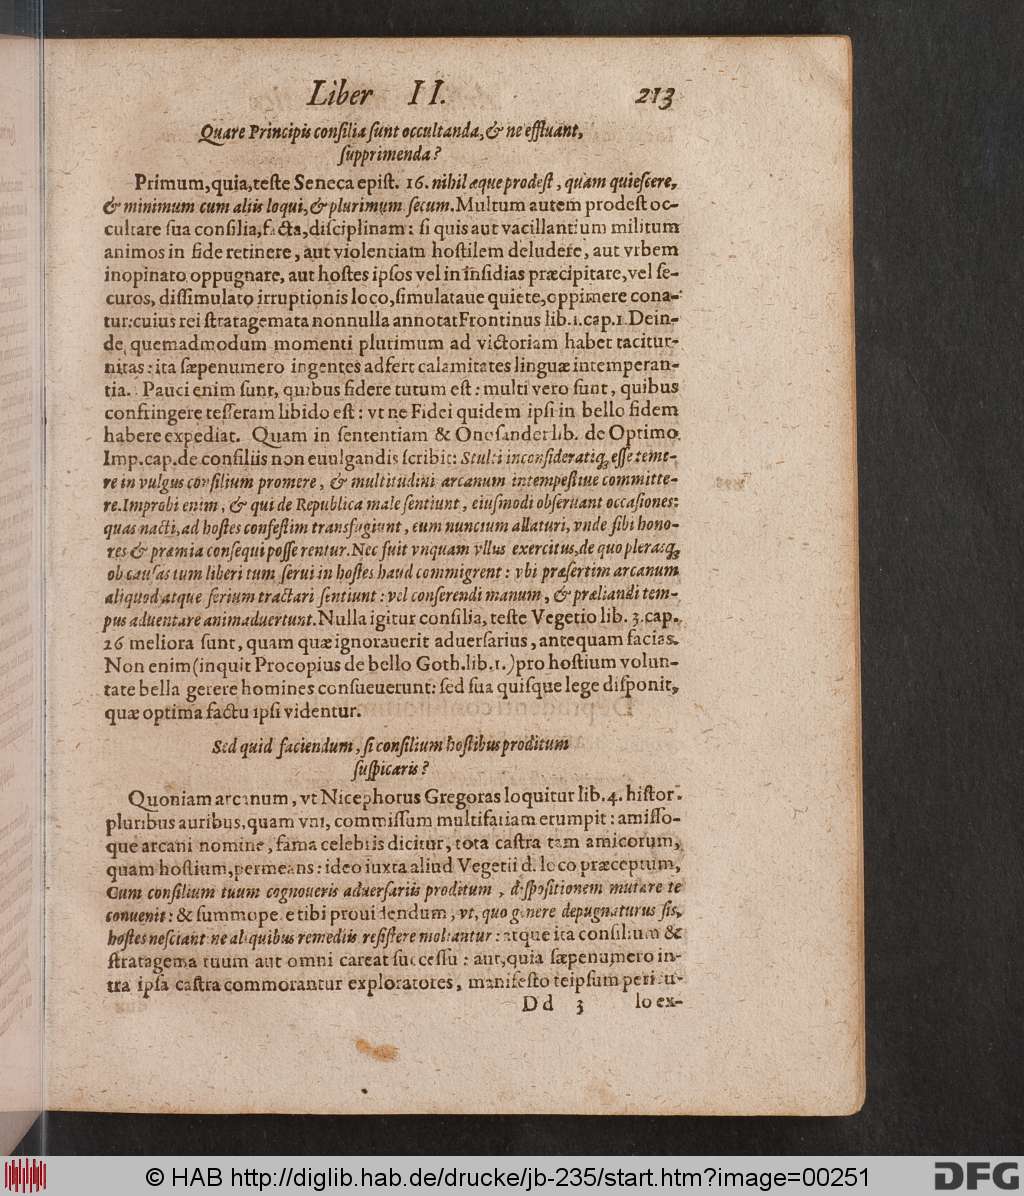 Liber II. 213
Quare Principis consilia sunt occultanda, & ne effluant,
supprimenda?
Primum, quia, teste Seneca epist. 16. nihil æque prodest, quam quiescere,
& minimum cum aliis loqui, & plurimum secum. Multum autem prodest oc-
cultare sua consilia, facta, disciplinam: si quis aut vacillantium militum
animos in fide retinere, aut violentiam hostilem deludere, aut vrbem
inopinato oppugnare, aut hostes ipsos vel in insidias præcipitare, vel se-
curos, dissimulato irruptionis loco, simulataue quiete, opprimere cona-
tur: cuius rei stratagemata nonnulla annotat Frontinus lib. 1. cap. 1. Dein-
de, quemadmodum momenti plurimum ad victoriam habet tacitur-
nitas: ita sæpenumero ingentes adfert calamitates linguæ intemperan-
tia. Pauci enim sunt, quibus fidere tutum est: multi vero sunt, quibus
confringere tesseram libido est: vt ne Fidei quidem ipsi in bello fidem
habere expediat. Quam in sententiam & Onesander lib. de Optimo
Imp. cap. de consiliis non euulgandis scribit: Stulti inconsideratiq; esse teme-
re in vulgus consilium promere, & multitudini arcanum intempestiue committe-
re. Improbi enim, & qui de Republica male sentiunt, eiusmodi obseruant occasiones:
quas nacti, ad hostes confestim transfugiunt, eum nuncium allaturi, vnde sibi hono-
res & præmia consequi posse rentur. Nec fuit vnquam vllus exercitus, de quo plerasq;
ob causas tum liberi tum serui in hostes haud commigrent: vbi præsertim arcanum
aliquod atque serium tractari sentiunt: vel conserendi manum, & præliandi tem-
pus aduentare animaduertunt. Nulla igitur consilia, teste Vegetio lib. 3. cap.
26 meliora sunt, quam quæ ignorauerit aduersarius, antequam facias.
Non enim (inquit Procopius de bello Goth. lib. 1.) pro hostium volun-
tate bella gerere homines consueuerunt: sed sua quisque lege disponit,
quæ optima factu ipsi videntur.
Sed quid faciendum, si consilium hostibus proditum
suspicaris?
Quoniam arcanum, vt Nicephorus Gregoras loquitur lib. 4. histor.
pluribus auribus, quam vni, commissum multifariam erumpit: amisso-
que arcani nomine, fama celebris dicitur, tota castra tam amicorum,
quam hostium, permeans: ideo iuxta aliud Vegetii d. loco præceptum,
Cum consilium tuum cognoueris aduersariis proditum, dispositionem mutare te
conuenit: & summopere tibi prouidendum, vt, quo genere depugnaturus sis,
hostes nesciant: ne aliquibus remediis resistere moliantur: atque ita consilium &
stratagema tuum aut omni careat successu: aut, quia sæpenumero in-
tra ipsa castra commorantur exploratores, manifesto teipsum pericu-
Dd 3 lo ex-
© HAB http://diglib.hab.de/drucke/jb-235/start.htm?image=00251
DFG